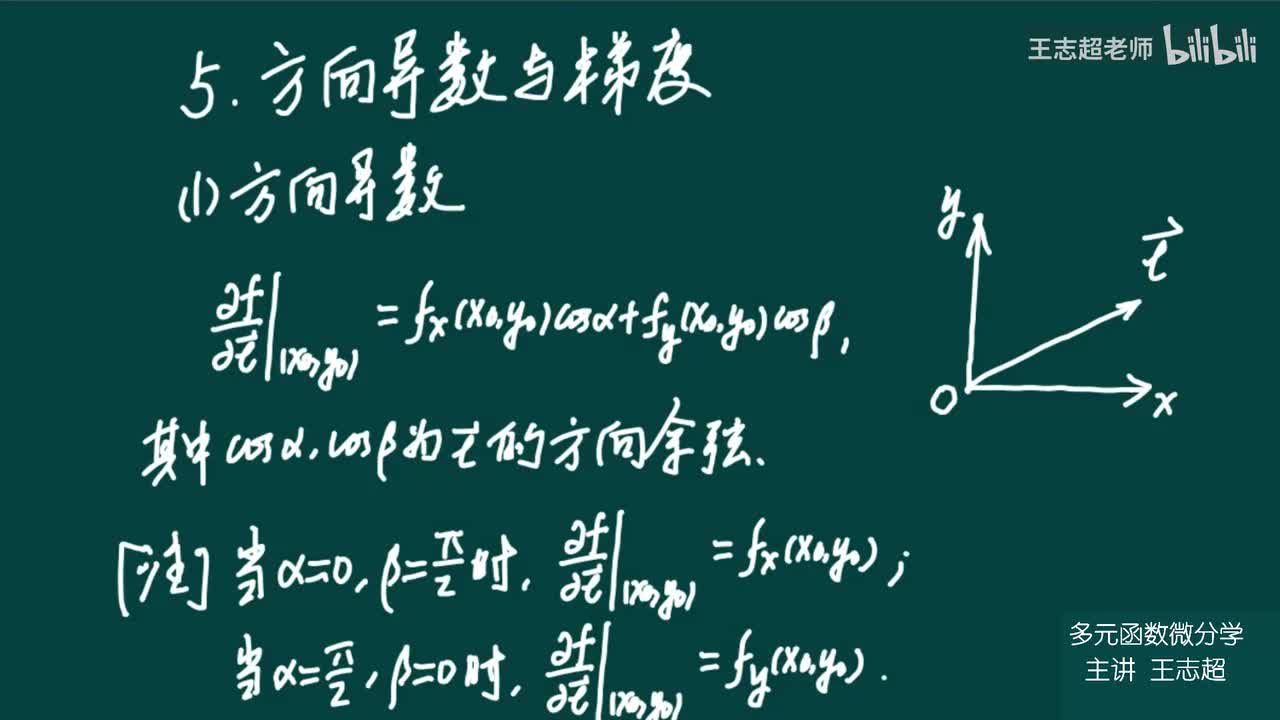 王志超老师 bilibili
5. 方向导数与梯度
(1) 方向导数
y
x
O
\vec{l}
\frac{∂f}{∂\vec{l}}|_{(x₀,y₀)} = fₓ(x₀,y₀)cosα+f_y(x₀,y₀)cosβ,
其中cosα,cosβ为\vec{l}的方向余弦.
[注] 当α=0,β=\frac{π}{2}时, \frac{∂f}{∂\vec{l}}|_{(x₀,y₀)} = fₓ(x₀,y₀);
当α=\frac{π}{2},β=0时, \frac{∂f}{∂\vec{l}}|_{(x₀,y₀)} = f_y(x₀,y₀).
多元函数微分学
主讲 王志超